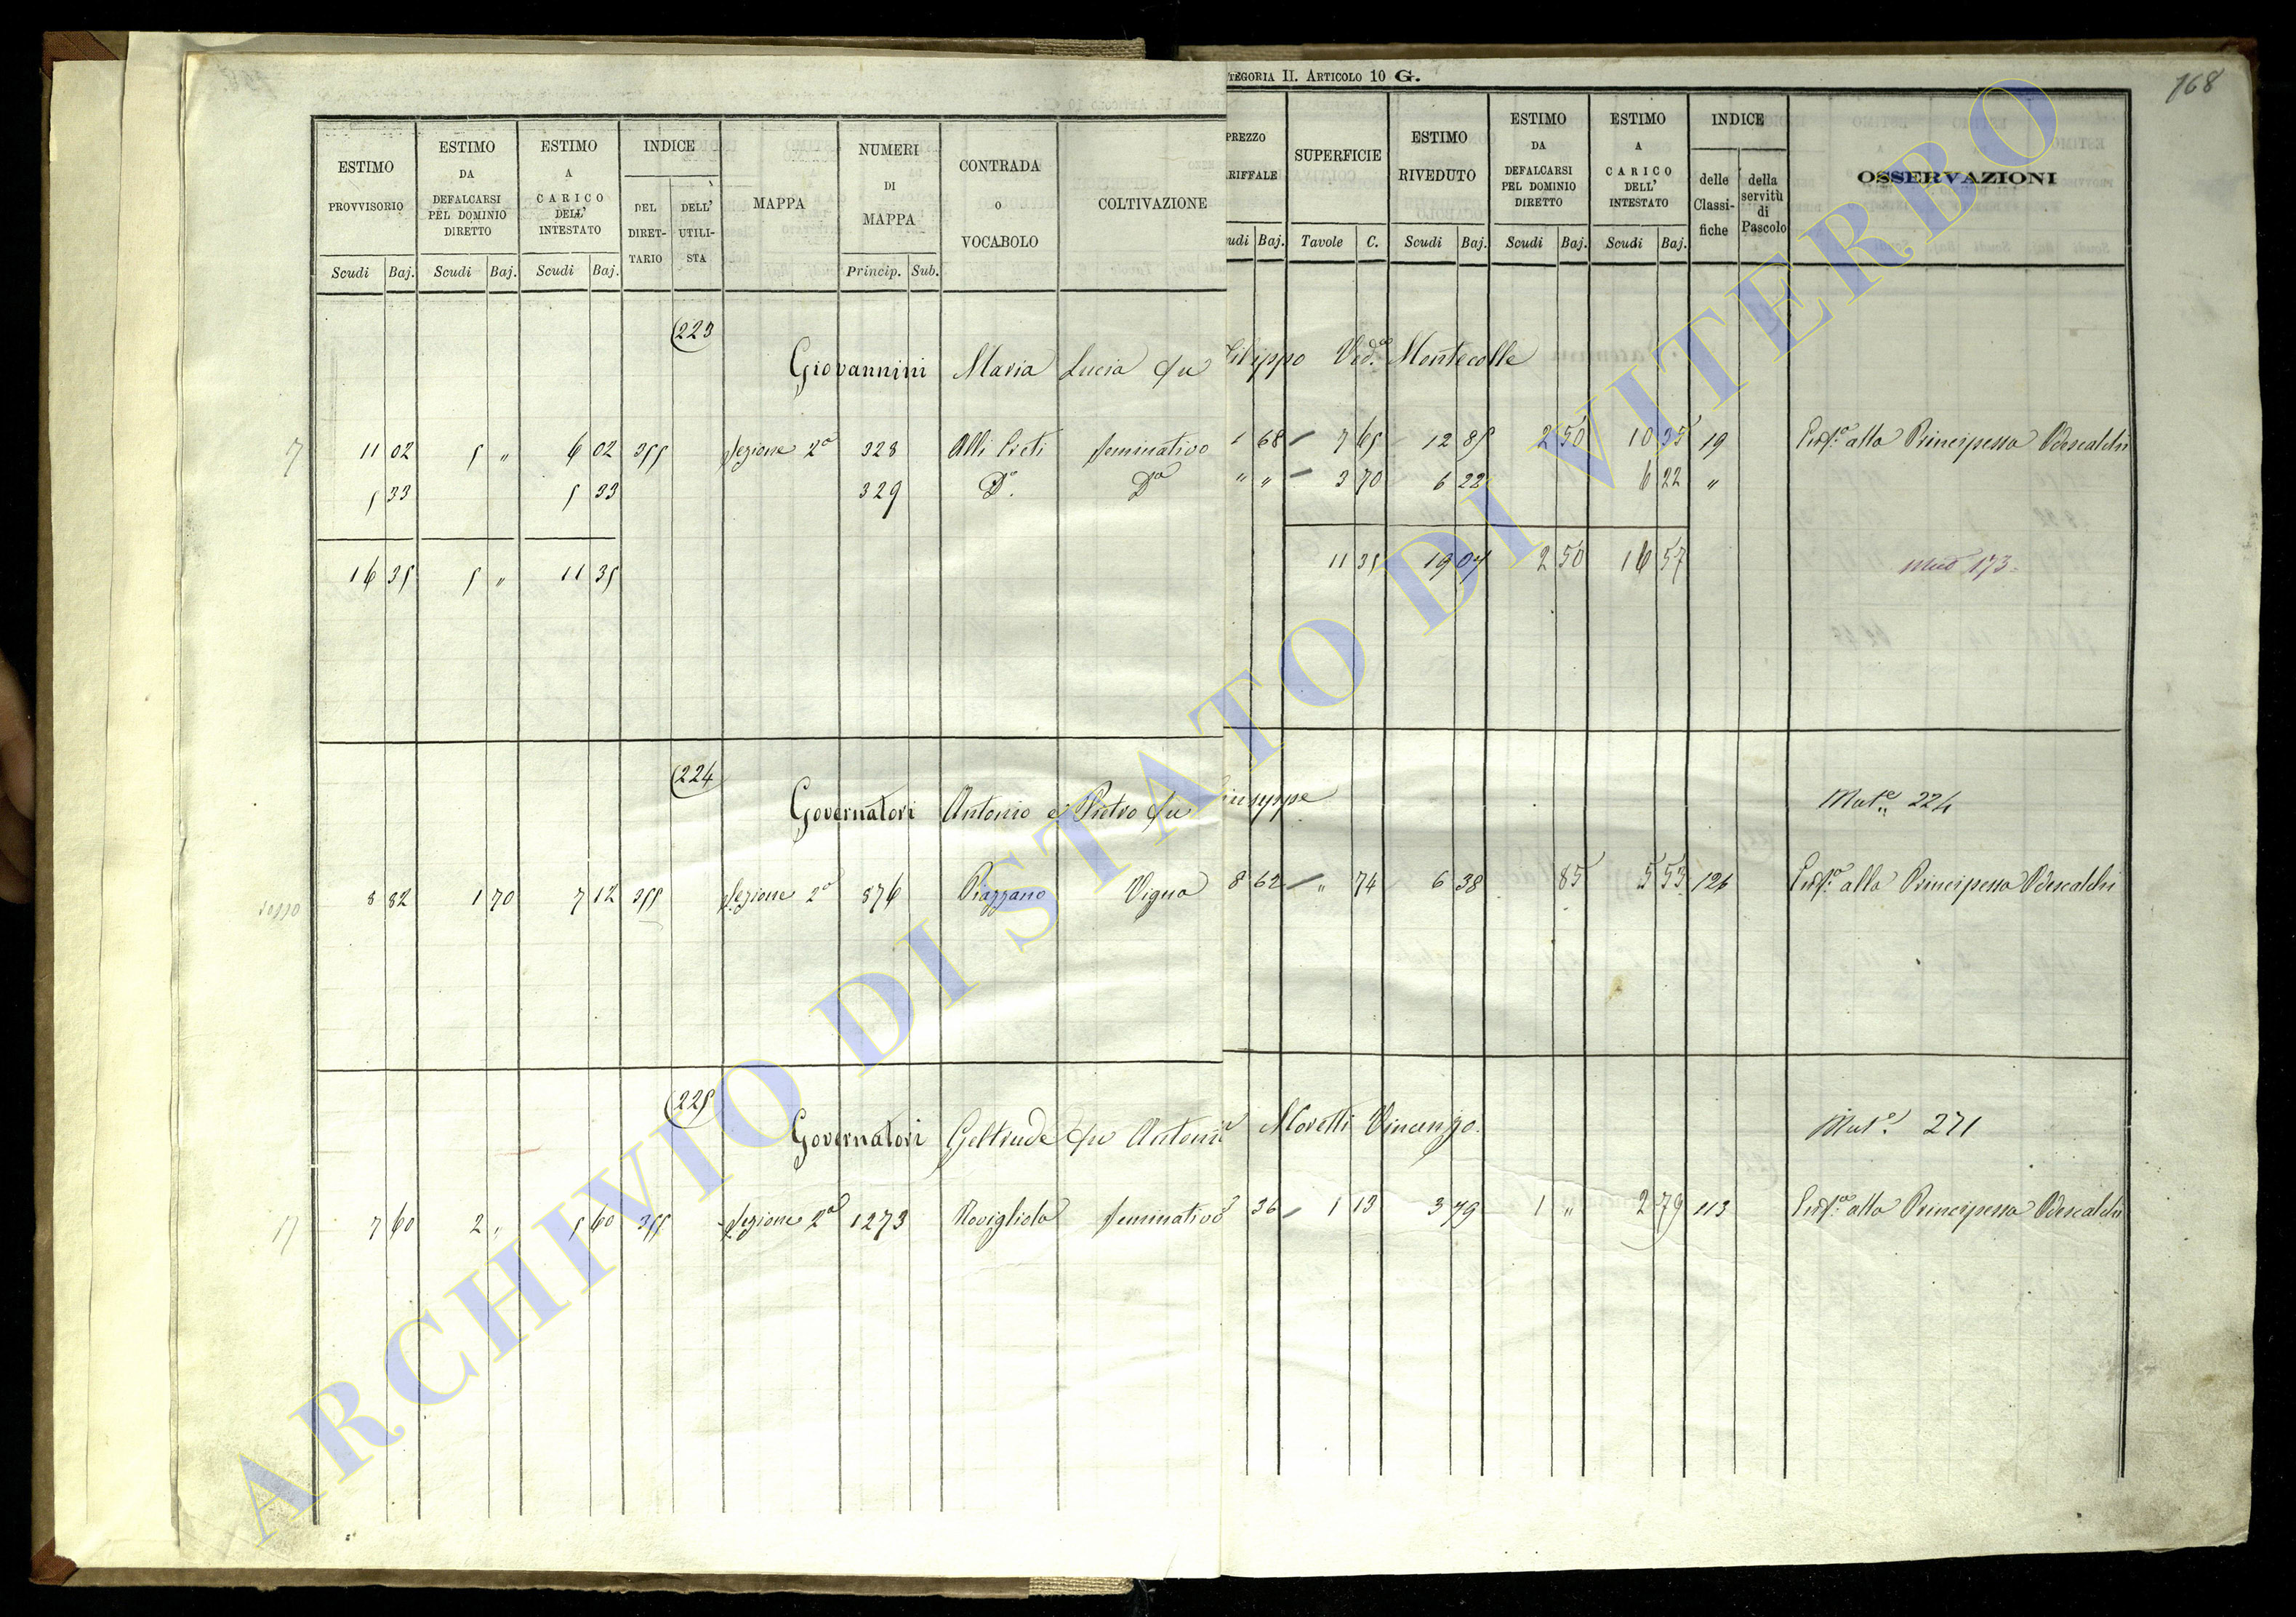 TEGORIA II. ARTICOLO 10 G.
168
ESTIMO PROVVISORIO
ESTIMO DA DEFALCARSI PEL DOMINIO DIRETTO
ESTIMO A CARICO DELL' INTESTATO
INDICE
DEL DIRET-TARIO
DELL' UTILI-STA
MAPPA
NUMERI DI MAPPA
CONTRADA o VOCABOLO
COLTIVAZIONE
PREZZO RIFFALE
SUPERFICIE
ESTIMO RIVEDUTO
ESTIMO DA DEFALCARSI PEL DOMINIO DIRETTO
ESTIMO A CARICO DELL' INTESTATO
INDICE
delle Classi-fiche
della servitù di Pascolo
OSSERVAZIONI
Scudi Baj. Scudi Baj. Scudi Baj. Princip. Sub. udi Baj. Tavole C. Scudi Baj. Scudi Baj. Scudi Baj.
223
Giovannini Maria Lucia fu Filippo Ved.a Montecolle
7 11 02 5 " 6 02 355 Sezione 2a 328 Alli Preti Seminativo 1 68 7 65 12 85 2 50 10 35 19 alla Principessa Odescalchi
5 33 5 33 329 Do. Do " " 3 70 6 22 6 22 "
16 35 5 " 11 35 11 35 19 07 2 50 16 57 173
224
Governatori Antonio e Pietro fu Giuseppe Mut.e 224
8 82 1 70 7 12 355 Sezione 2a 876 Piazzano Vigna 8 62 " 74 6 38 85 5 53 126 alla Principessa Odescalchi
225
Governatori Geltrude fu Antonio Moretti Vincenzo. Mut.e 271
17 7 60 2 " 5 60 355 Sezione 2a 1273 Rovigliola Seminativo 36 1 13 3 79 1 " 2 79 113 alla Principessa Odescalchi
ARCHIVIO DI STATO DI VITERBO